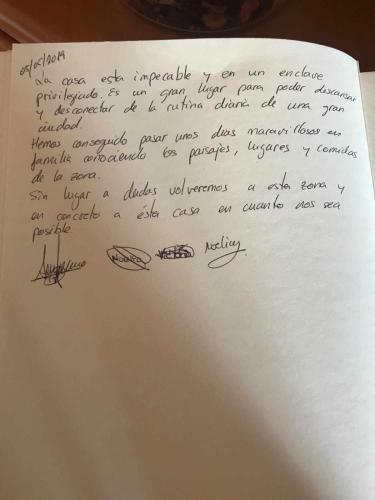 05/05/2019
La casa esta impecable y en un enclave
privilegiado. Es un gran lugar para poder descansar
y desconectar de la rutina diaria de una gran
ciudad.
Hemos conseguido pasar unos dias maravillosos en
familia conociendo los paisajes, lugares y comidas
de la zona.
Sin lugar a dudas volveremos a esta zona y
en concreto a ésta casa en cuanto nos sea
posible.
Noelia